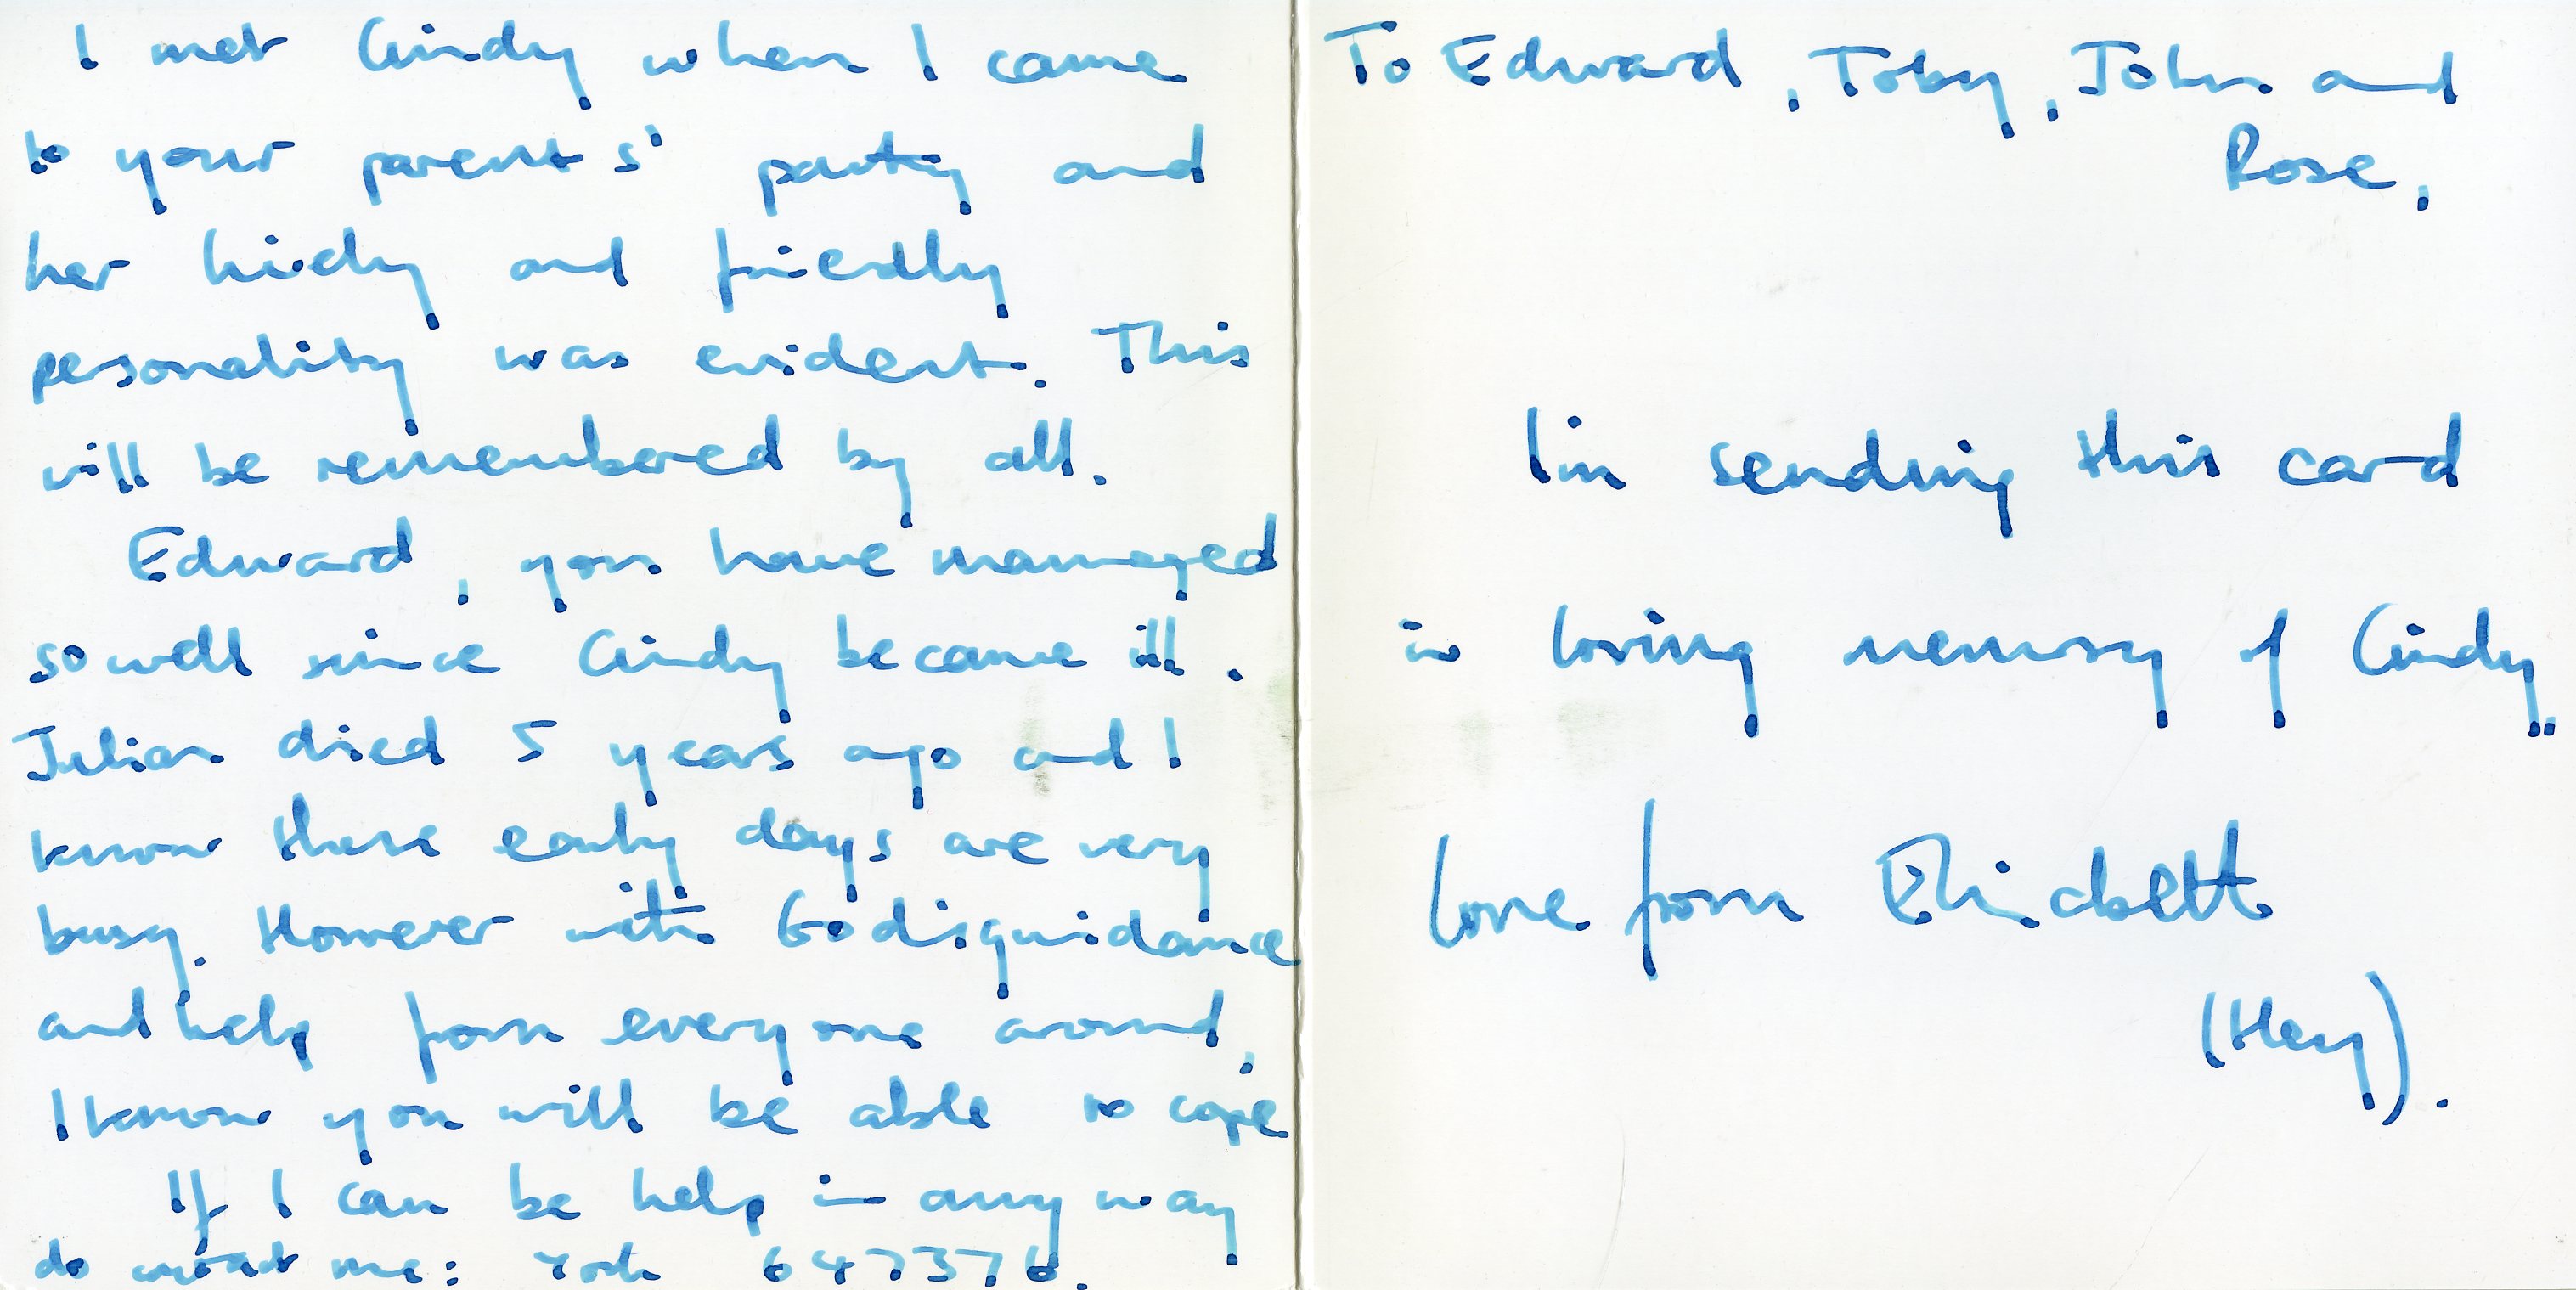 I met Cindy when I came
to your parents' party and
her kindly and friendly
pesonality was evident. This
will be remembered by all.
Edward, you have managed
so well since Cindy became ill.
Julian died 5 years ago and I
know these early days are very
busy. However with God's guidance
and help from everyone around,
I know you will be able to cope
If I can be help in any way
do contact me: York 647376.
To Edward, Toby, John and
Rose,
I'm sending this card
in loving memory of Cindy,,
love from Elizabeth
(Hey).